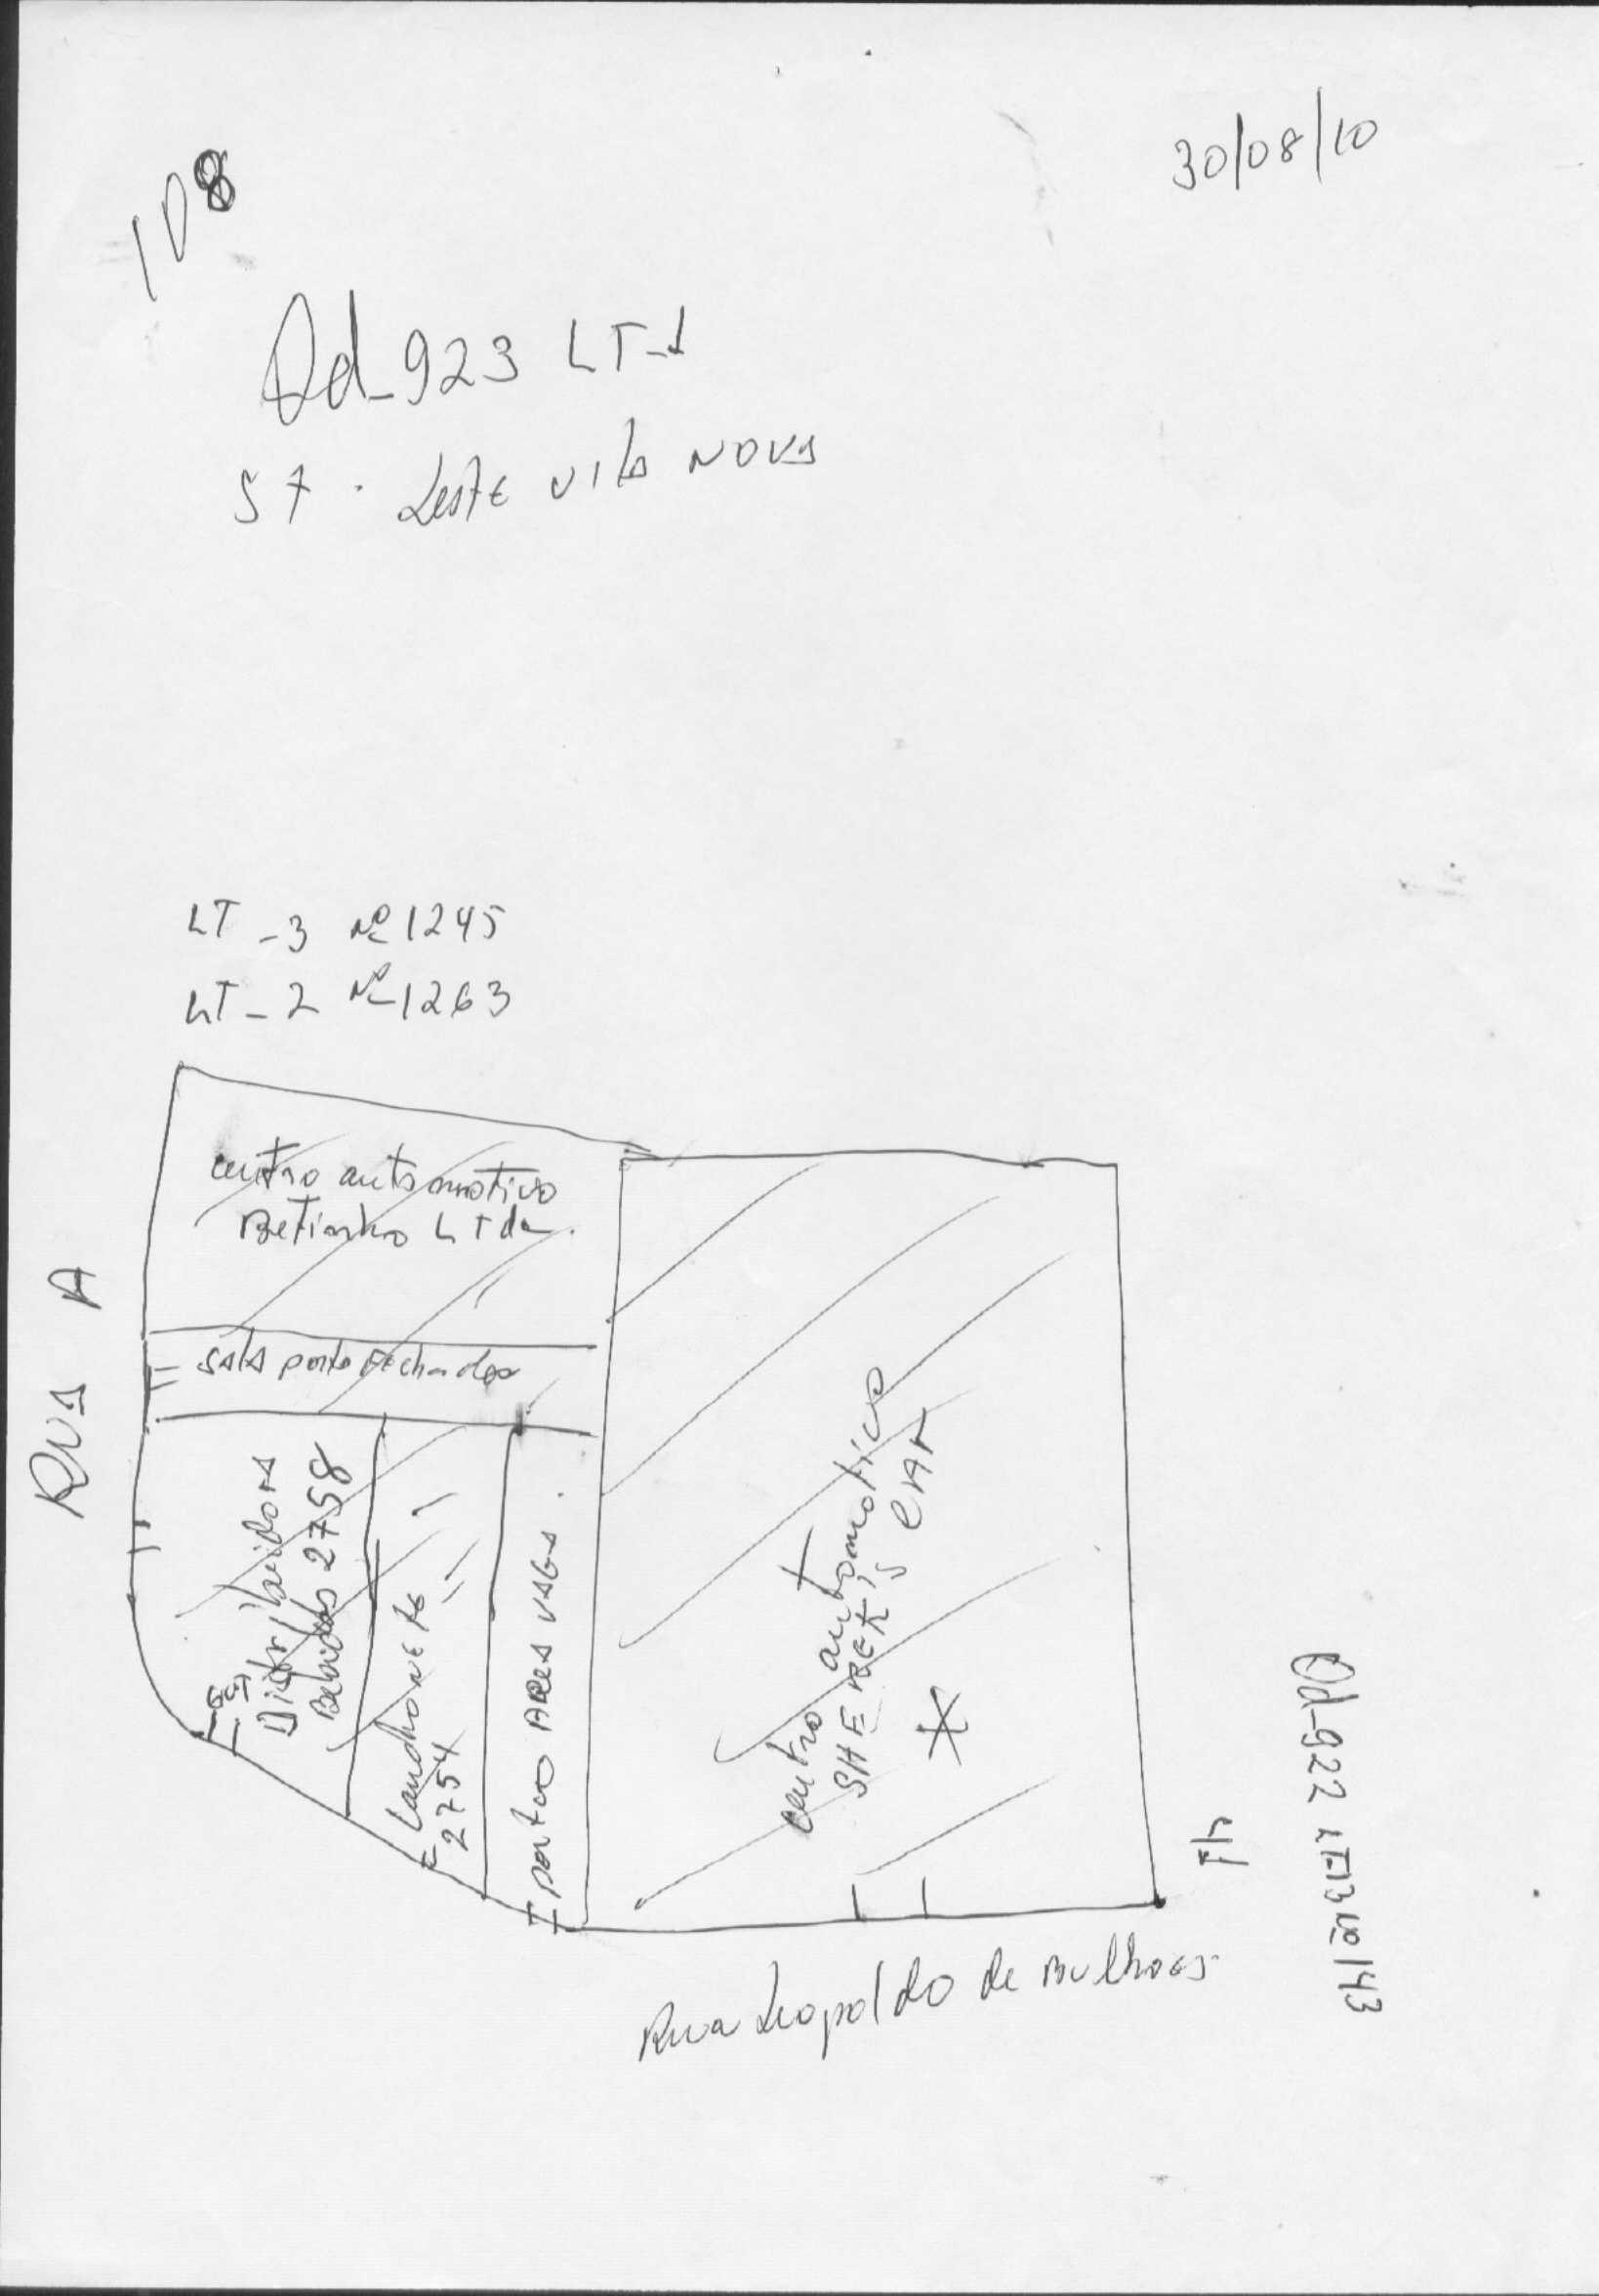 30/08/10
108
Qd_923 LT-1
ST. Leste vila NOVA
LT_3 Nº1245
LT_2 Nº1263
centro automotivo
Betinho LTda.
sala porta Fechada
RUA A
Distribuidora
Bebidas 2758
Lanchonete
2754
portão Area VAGA
centro automotivo
Qd_922 LT-13 Nº143
Rua Leopoldo de Bulhoes